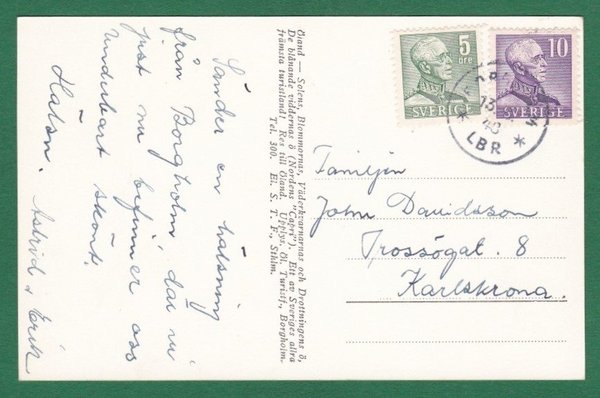 Sänder en hälsning
från Borgholm, där vi
just nu befinner oss
Underbart skönt!
Hälsn. Astrid o Erik
Öland — Solens, Blommornas, Väderkvarnarnas och Drottningens ö,
De blånande viddernas ö (Nordens "Capri"). Ett av Sveriges allra
främsta turistland! Res till Öland. Upplys. Öl. Turistf., Borgholm.
Tel. 300. Ei. S. T. F., Sthlm.
5
ÖRE
SVERIGE
10
SVERIGE
13
48
LBR
Familjen
John Davidsson
Trossögat. 8
Karlskrona.